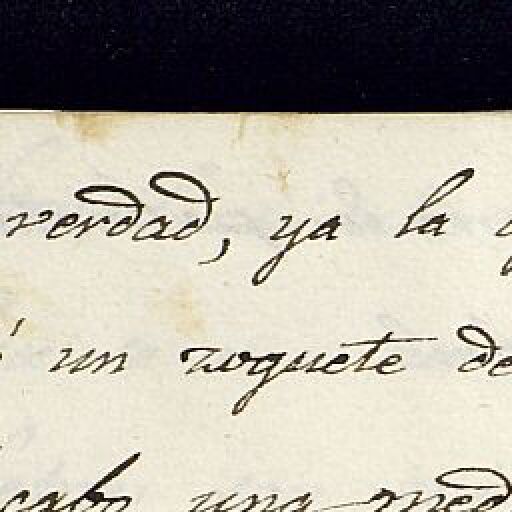 verdad, ya la
un zoquete de
cabo una med